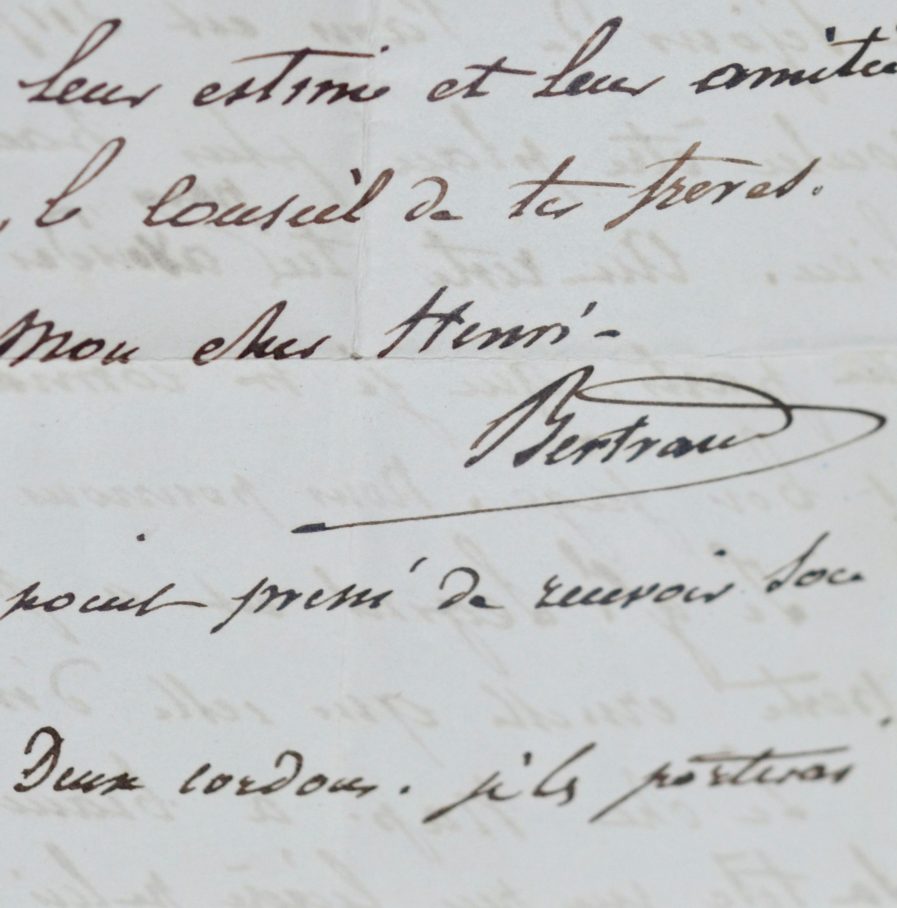 leur estime et leur amitié
, le conseil de tes freres.
Mon cher Henri -
Bertrand
point pressé de recevoir son
Deux cordons. je les porterai